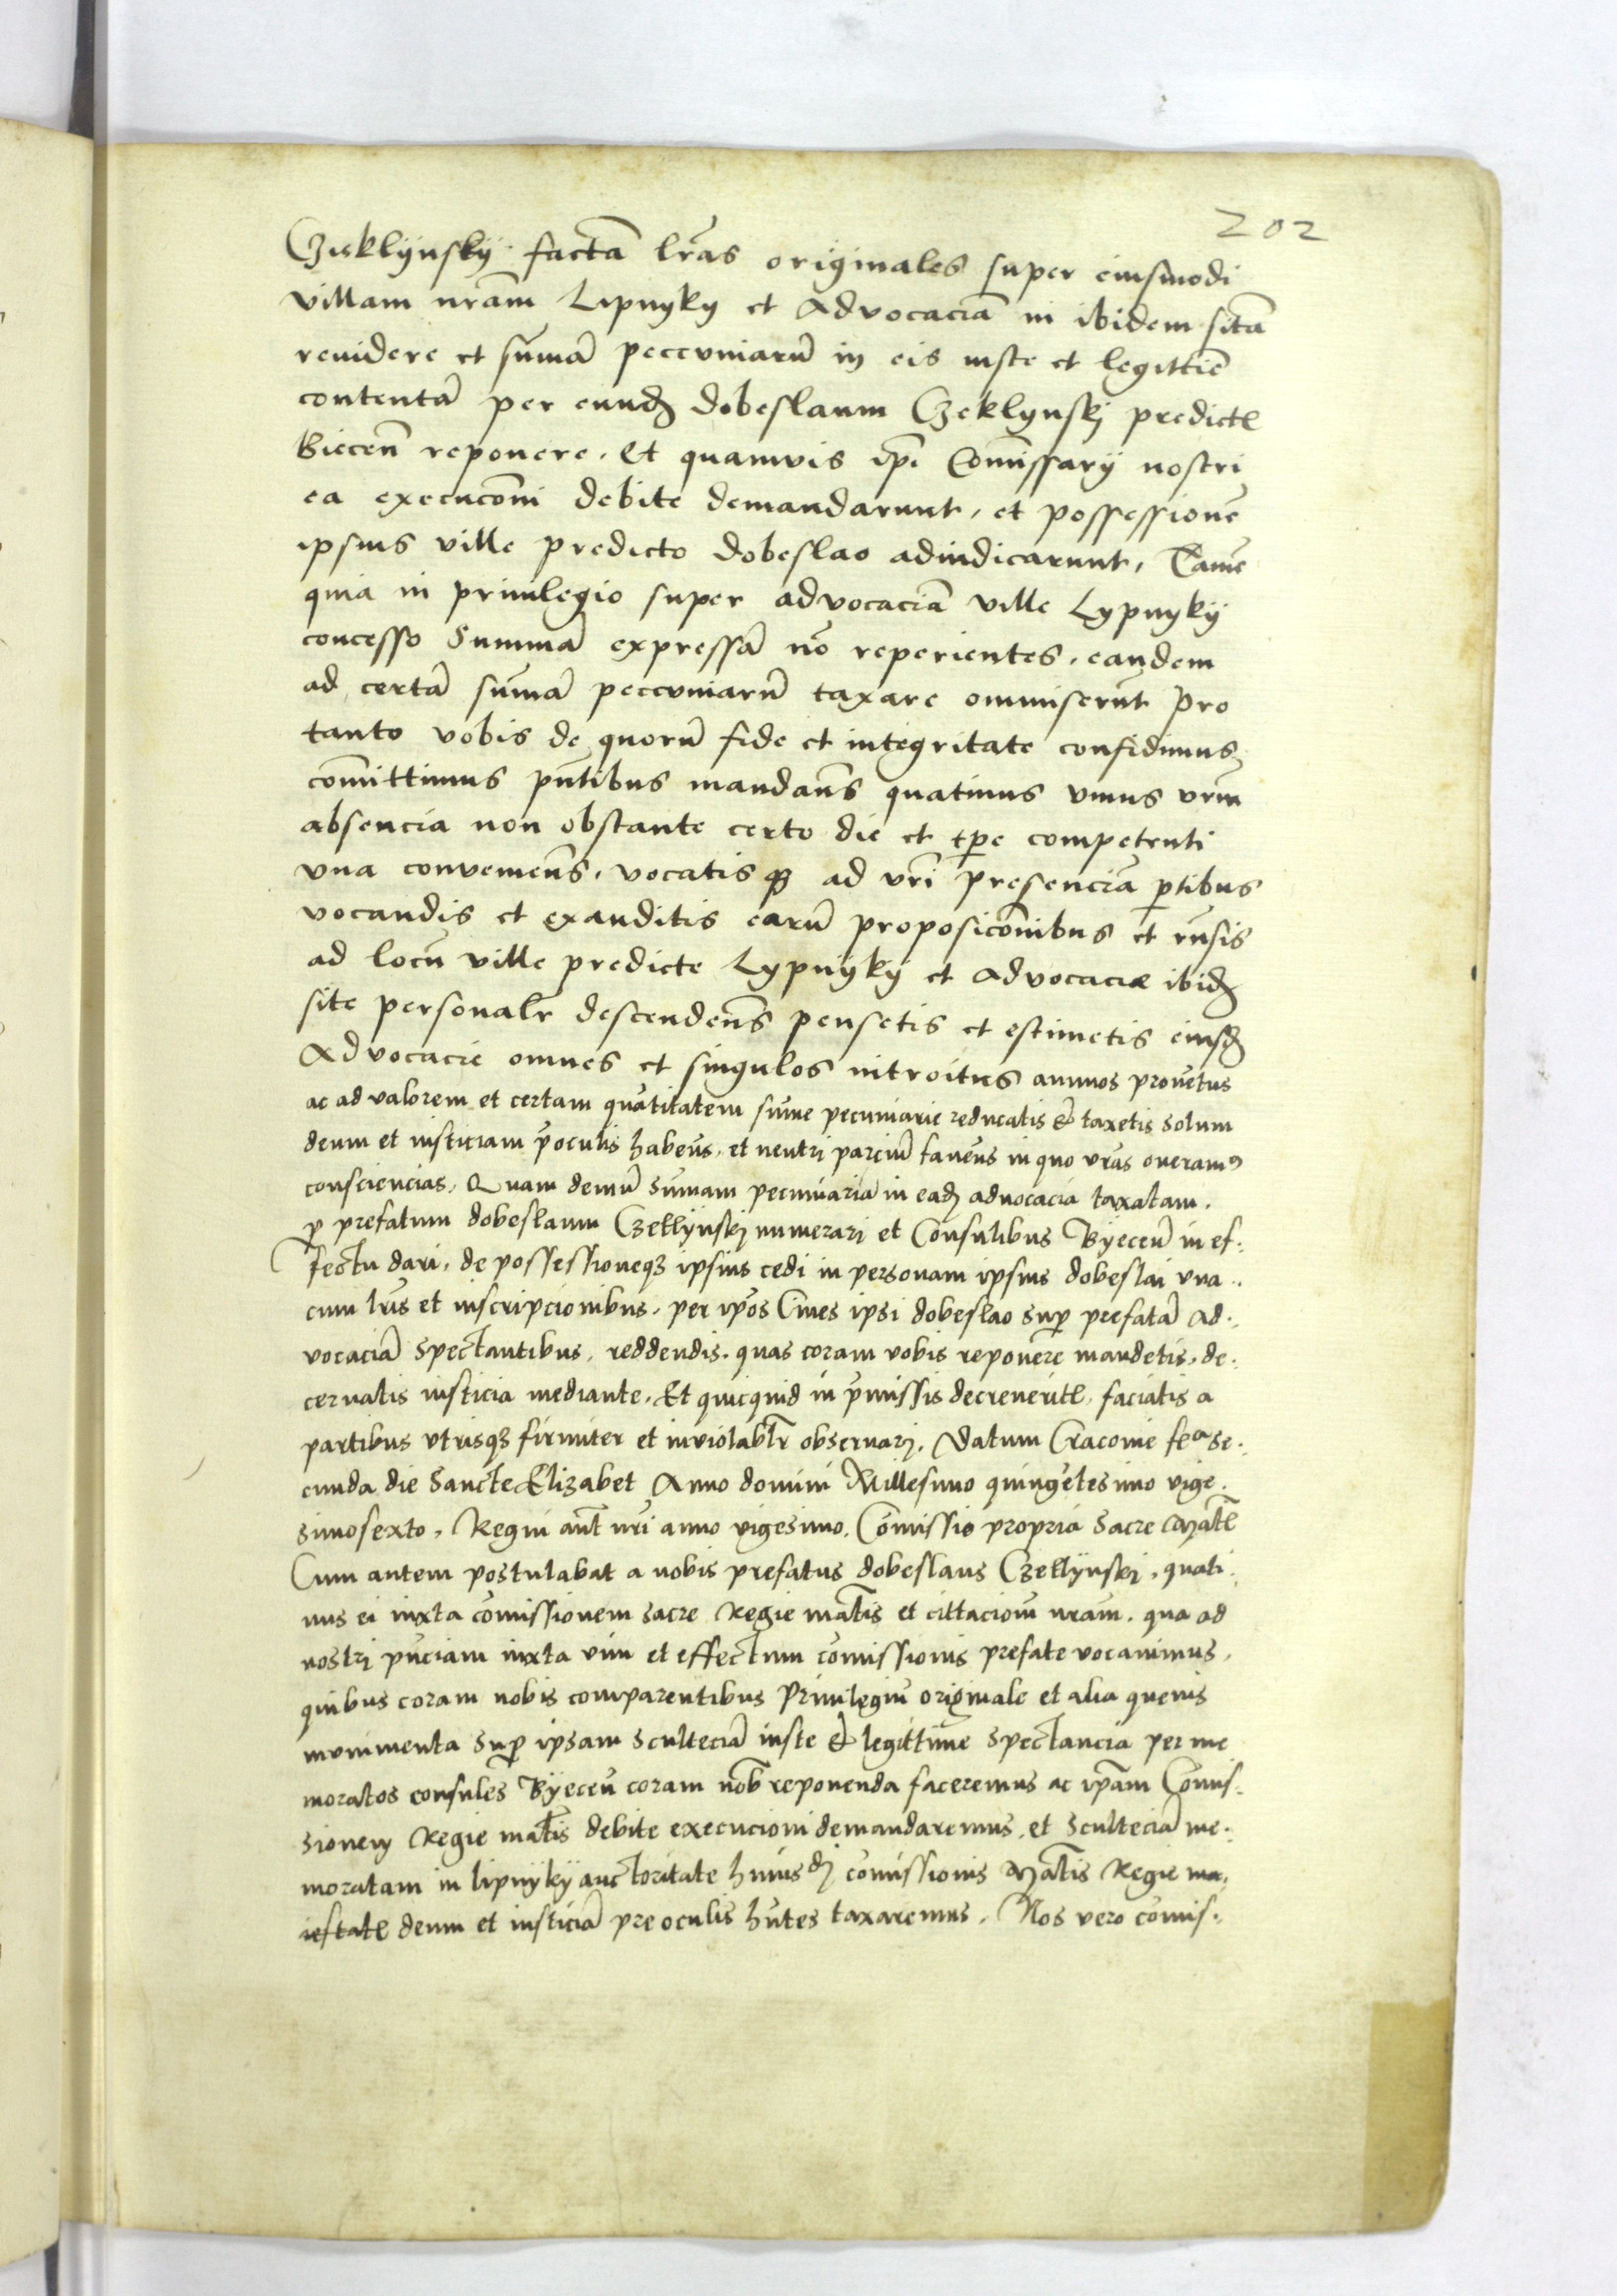 202
Czieklÿnskÿ factã lr̃as originales super eiusmodi
villam nr̃am Lipnyky et Advocaciã in ibidem sitã
reuidere et sum̃ã peccuniarũ in eis iuste et legittiẽ
contentã per eundȝ dobeslaum Czeklynskj predictꝭ
Biecen̄ reponere. Et quamvis ip̃i Com̃issarÿ nostri
ea execuc̃oni debite demandarunt, et possessionẽ
ipsius ville predicto dobeslao adiudicarunt, Tamẽ
quia in priuilegio super advocaciã ville Lypnykÿ
concesso Summã expressã nõ reperientes, eandem
ad certã sum̃ã peccuniarũ taxare ommiserũt Pro
tanto vobis de quorũ fide et integritate confidimus
com̃ittimus pñtibus mandañs quatinus vnius vrm̃
absencia non obstante certo die et tp̃e competenti
vna conveniens̃, vocatis qȝ ad vr̃i presenciã ꝑtibus
vocandis et exauditis earũ proposic̃onibus et rñsis
ad locũ ville predicte Lypnÿkÿ et Advocacie ibidȝ
site personalr̃ descendeñs pensetis et estimetis eiusdȝ
Advocacie omnes et singulos introitus annuos prouẽtus
ac ad valorem et certam quãtitatem sum̃e pecuniarie reducatis et taxetis solum
deum et iusticiam p̃ oculis habeñs, et neutri parciũ faueñs in quo vr̃as oneramꝰ
consciencias, Quam demũ sum̃am pecuniariã in eadȝ aduocacia taxatam.
ꝑ prefatum dobeslaum Czeklÿnskj numerari et Consulibus Byeceñ in ef.
fectu dari, de possessioneqȝ ipsius cedi in personam ipsius dobeslai vna.
cum lr̃is et inscripcionibus, per ip̃os Ciues ipsi dobeslao sup̱ prefatã Ad.
vocaciã spectantibus, reddendis, quas coram vobis reponere mandetis, de.
cernatis iusticia mediante, Et quicquid in p̃missis decreueritꝭ, faciatis a
partibus vtrisqȝ firmiter et inviolabl̃r obseruarj. Datum Cracouie feᵃ se.
cunda die Sancte Elizabet Anno domini Millesimo quingẽtesimo vige.
simosexto, Regni aũt nr̃i anno vigesimo. Com̃issio propria Sacre Mãtꝭ
Cum autem postulabat a nobis prefatus dobeslaus Czeklÿnskj, quati.
nus ei iuxta com̃issionem sacre Regie mãtis et cittacioñ nrãm, qua ad
nostri pñciam iuxta vim et effectum com̃issionis prefate vocauimus,
quibus coram nobis comparentibus Priuilegiũ originale et alia queuis
munimenta sup̱ ipsam Scultecia͂ iuste et legittime spectancia per me
moratos consules Byeceñ coram nob̃ reponenda faceremus ac ip̃am Com̃is.
sionem Regie mãtis debite execucioni demandaremus, et Scultecia͂ me.
moratam in lipnÿkÿ auctoritate huiusdȝ com̃issionis Mãtis Regie ma.
iestatꝭ deum et iusticiã pre oculis hñtes taxaremus. Nos vero com̃is.